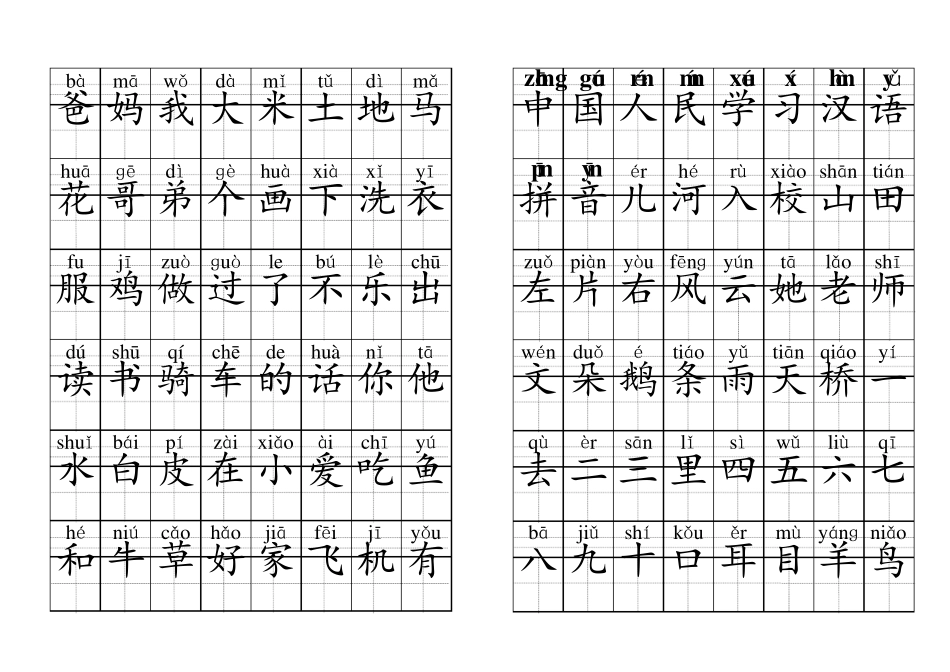 bà mā wǒ dà mǐ tǔ dì mǎ
爸妈我大米土地马
huā gē dì gè huà xià xǐ yī
花哥弟个画下洗衣
fu jī zuò guò le bú lè chū
服鸡做过了不乐出
dú shū qí chē de huà nǐ tā
读书骑车的话你他
shuǐ bái pí zài xiǎo ài chī yú
水白皮在小爱吃鱼
hé niú cǎo hǎo jiā fēi jī yǒu
和牛草好家飞机有
中国人民学习汉语
ér hé rù xiào shān tián
拼音儿河入校山田
zuǒ piàn yòu fēng yún tā lǎo shī
左片右风云她老师
wén duǒ é tiáo yǔ tiān qiáo yí
文朵鹅条雨天桥一
qù èr sān lǐ sì wǔ liù qī
去二三里四五六七
bā jiǔ shí kǒu ěr mù yáng niǎo
八九十口耳目羊鸟